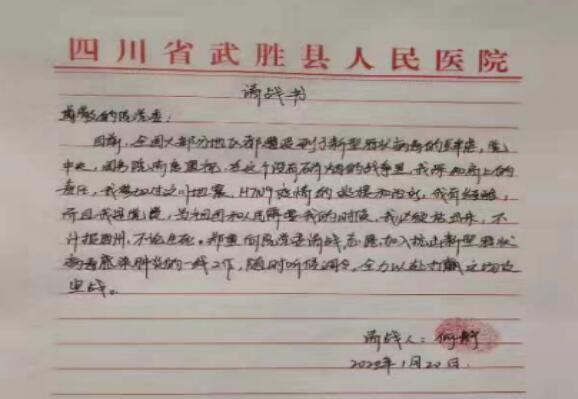 四川省武胜县人民医院
请战书
尊敬的院党委：
目前，全国大部分地区都遭受到了新型冠状病毒的肆虐，党
中央，国务院高度重视，在这个没有硝烟的战争里，我深知肩上的
责任，我参加过汶川地震、H7N9疫情的救援和治疗，我有经验，
而且我是党员，当祖国和人民需要我的时候，我必须站出来，不
计报酬，不论生死。郑重向院党委请战，志愿加入抗击新型冠状
病毒感染肺炎的一线工作，随时听候调令，全力以赴打赢这场攻
坚战。
请战人：何
2020年1月20日.